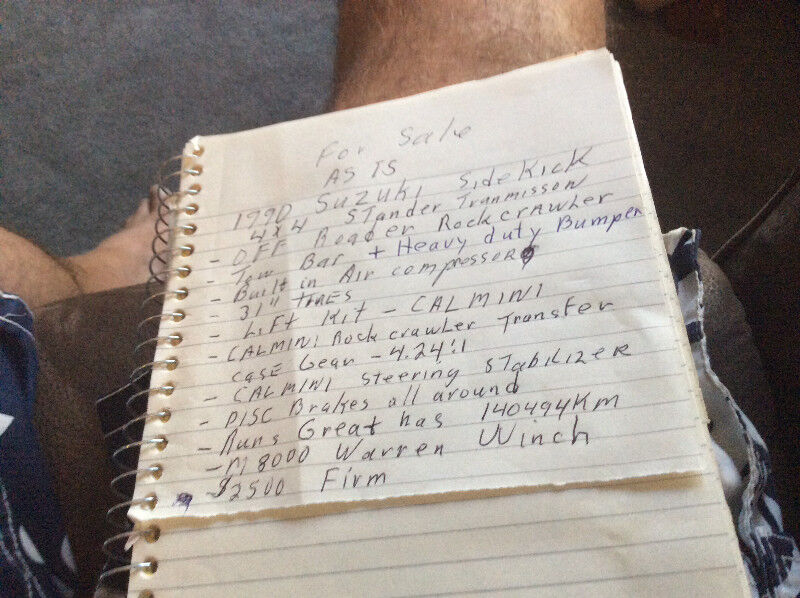 For Sale
AS IS
1990 SUZUKI SideKick
4x4 STander Tranmisson
- OFF Roader Rockcrawler
- Tow Bar + Heavy duty Bumper
- Built in Air compressor
- 31" TIRES
- LiFT Kit - CALMINI
- CALMINI Rock crawler Transfer
case Gear - 4.24:1
- CALMINI Steering STabiLIZER
- DISC Brakes all around
- Runs Great has 140494Km
- M8000 Warren Winch
- $2500 Firm